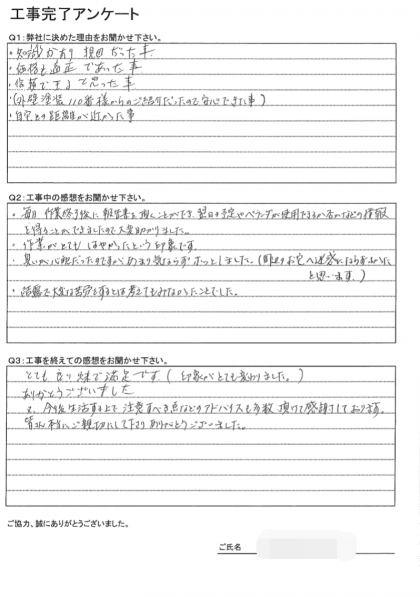 工事完了アンケート
Q1:弊社に決めた理由をお聞かせ下さい。
・知識があり親身だった事
・価格も適正であった事
・信頼できると思った事
(外壁塗装110番様からのご紹介だったので安心できた事)
・自宅との距離が近かった事
Q2:工事中の感想をお聞かせ下さい。
・毎日 作業終了後に報告書を頂くことができ、翌日の予定やベランダが使用できるか否かなどの情報
を得ることができましたので大変助かりました。
・作業がとてもはやかったという印象です。
・臭いが心配だったのですがあまり気にならずホッとしました。(隣のお宅へ迷惑にならずよかった
と思います。)
大変は苦労をするとは考えてもみなかったことでした。
Q3:工事を終えての感想をお聞かせ下さい。
とても良い味で満足です。(印象がとても変わりました。)
ありがとうございました
又、今後生活する上で注意すべき点などのアドバイスも多数頂けて感謝しております。
皆さん本当にご親切にして下さりありがとうございました。
ご協力、誠にありがとうございました。
ご氏名